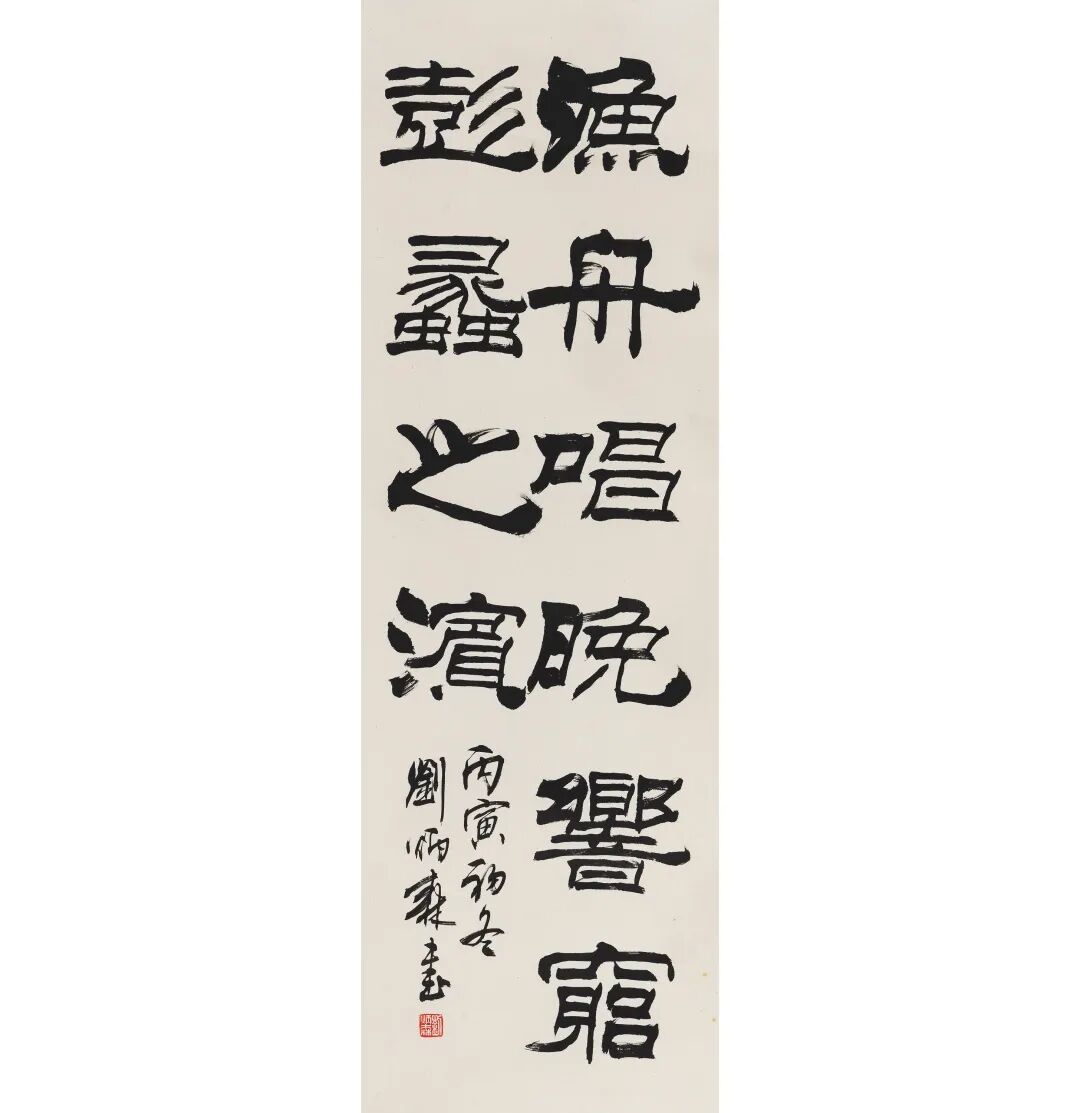 漁舟唱晚響窮
彭蠡之濱
丙寅初冬
劉炳森書